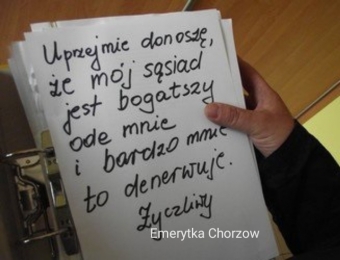 Uprzejmie donoszę,
że mój sąsiad
jest bogatszy
ode mnie
i bardzo mnie
to denerwuje.
Życzliwy
Emerytka Chorzow